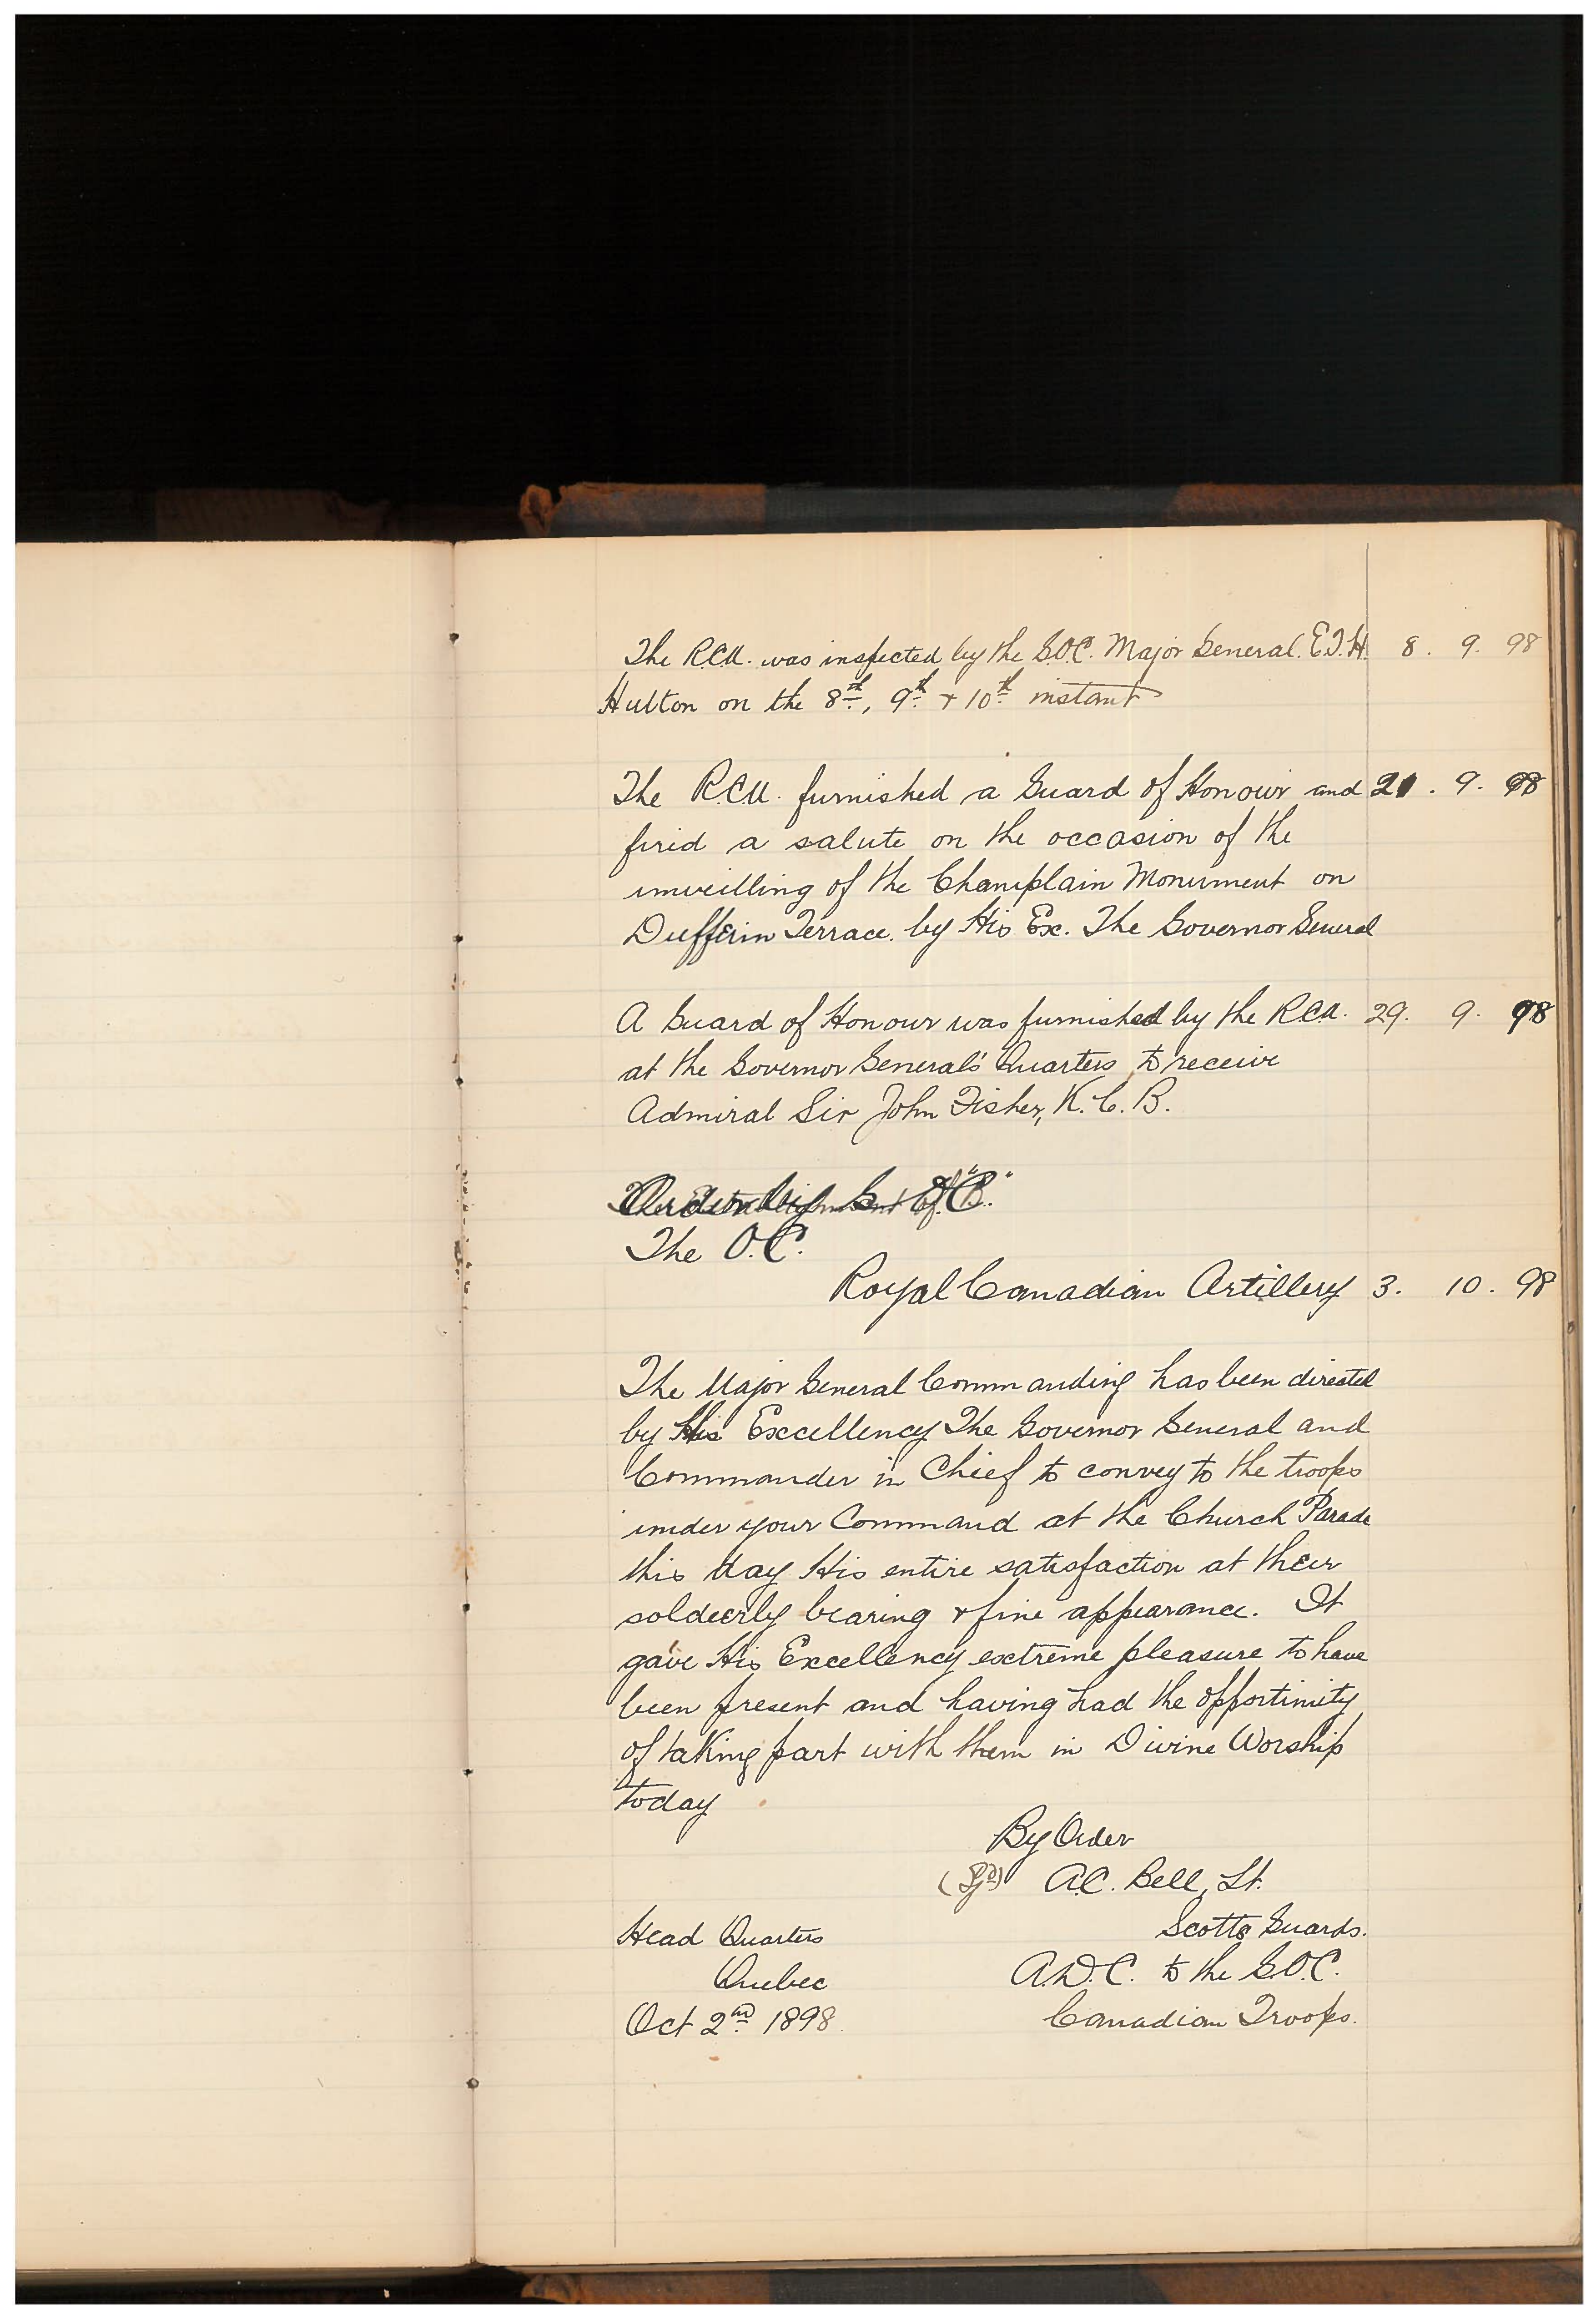 The R.C.A. was inspected by the G.O.C. Major General. E.T.H. 8. 9. 98
Hutton on the 8th, 9th + 10th instant
The R.C.A. furnished a Guard of Honour and 21. 9. 98
fired a salute on the occasion of the
unveilling of the Champlain Monument on
Dufferin Terrace. by His Ex. The Governor General
A Guard of Honour was furnished by the R.C.A. 29. 9. 98
at the Governor General's Quarters, to receive
Admiral Sir John Fisher, K.C.B.
The O.C.
Royal Canadian Artillery 3. 10. 98
The Major General Commanding has been directed
by His Excellency The Governor General and
Commander in Chief to convey to the troops
under your Command at the Church Parade
this day His entire satisfaction at their
soldeerly bearing + fine appearance. It
gave His Excellency extreme pleasure to have
been present and having had the opportunity
of taking part with them in Divine Worship
today
By Order
(Sgd) A.C. Bell, Lt.
Head Quarters Scotts Guards.
Quebec A.D.C. to the G.O.C.
Oct 2nd 1898 Canadian Troops.